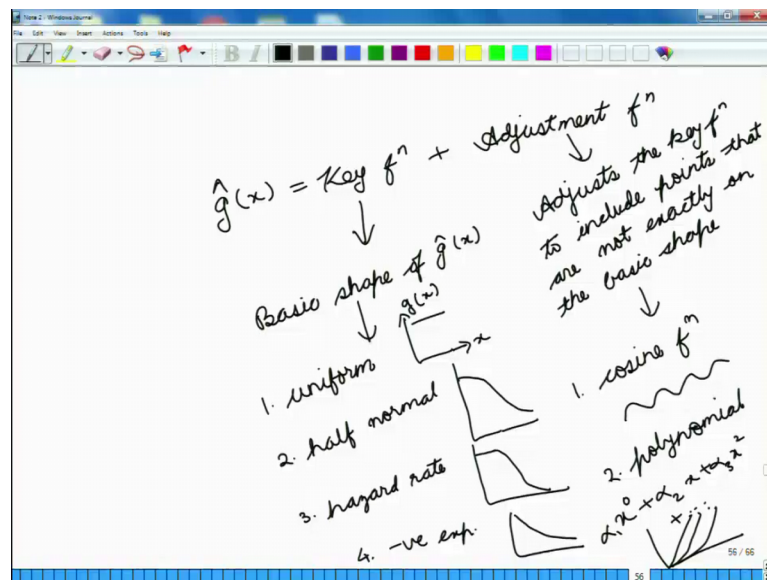 Note 2 - Windows Journal
File Edit View Insert Actions Tools Help
B I
ĝ(x) = Key fⁿ + Adjustment fⁿ
Basic shape of ĝ(x)
1. uniform
g(x)
x
2. half normal
3. hazard rate
4. -ve exp.
Adjusts the key fⁿ
to include points that
are not exactly on
the basic shape
1. cosine fⁿ
2. polynomial
α₁x⁰ + α₂x + α₃x²
+ ....
56 / 66
56